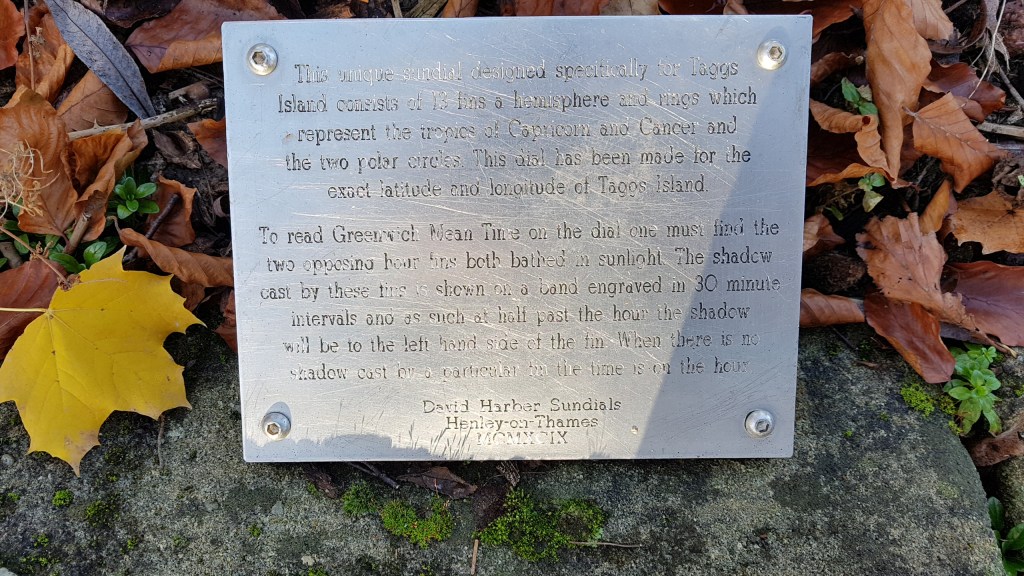 This unique sundial designed specifically for Taggs
Island consists of 13 fins a hemisphere and rings which
represent the tropics of Capricorn and Cancer and
the two polar circles. This dial has been made for the
exact latitude and longitude of Taggs Island.
To read Greenwich Mean Time on the dial one must find the
two opposing hour fins both bathed in sunlight. The shadow
cast by these fins is shown on a band engraved in 30 minute
intervals and as such at half past the hour the shadow
will be to the left hand side of the fin. When there is no
shadow cast by a particular fin the time is on the hour
David Harber Sundials
Henley-on-Thames
MCMXCIX